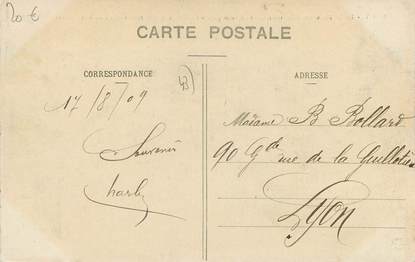 20 €
CARTE POSTALE
CORRESPONDANCE
17/8/09
Souvenir
Charly
ADRESSE
Madame B Bollard
90 Gde rue de la Guillotière
Lyon